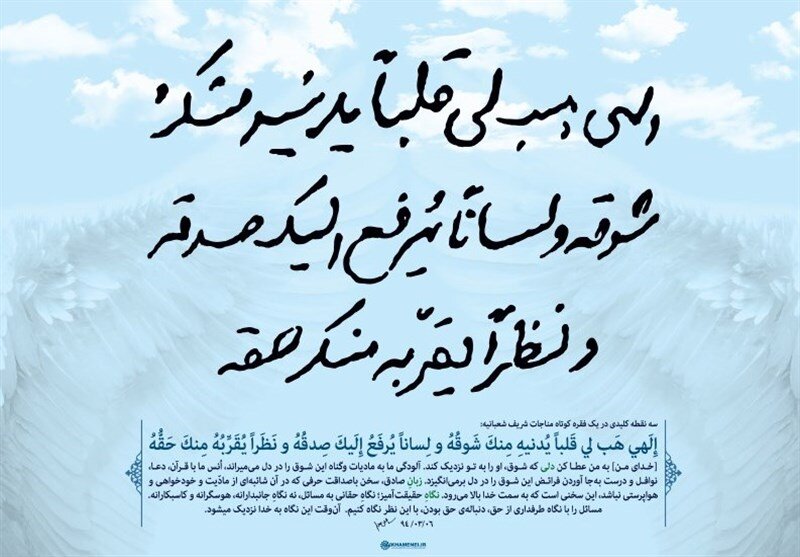 الهی هب لی قلباً یدنیه منک
شوقه و لساناً یُرفع الیک صدقه
و نظراً یقرّبه منک حقه
سه نقطه کلیدی در یک فقره کوتاه مناجات شریف شعبانیه:
إِلَهي هَب لي قَلباً يُدنيهِ مِنكَ شَوقُهُ و لِساناً يُرفَعُ إِلَيكَ صِدقُهُ و نَظَراً يُقَرِّبُهُ مِنكَ حَقُّهُ
[خدای من] به من عطا کن دلی که شوق، او را به تو نزدیک کند. آلودگی ما به مادیات وگناه این شوق را در دل می‌میراند، اُنس ما با قرآن، دعا،
نوافل و درست به‌جا آوردن فرائض این شوق را در دل برمی‌انگیزد. زبانِ صادق، سخن باصداقت حرفی که در آن شائبه‌ای از مادّیت و خودخواهی و
هواپرستی نباشد، این سخنی است که به سمت خدا بالا می‌رود. نگاهِ حقیقت‌آمیز؛ نگاهِ حقانی به مسائل، نه نگاهِ جانبدارانه، هوسگرانه و کاسبکارانه.
مسائل را با نگاه طرفداری از حق، دنباله‌ی حق بودن، با این نظر نگاه کنیم. آن‌وقت این نگاه به خدا نزدیک میشود.
۹۴/۰۳/۰۶
KHAMENEI.IR